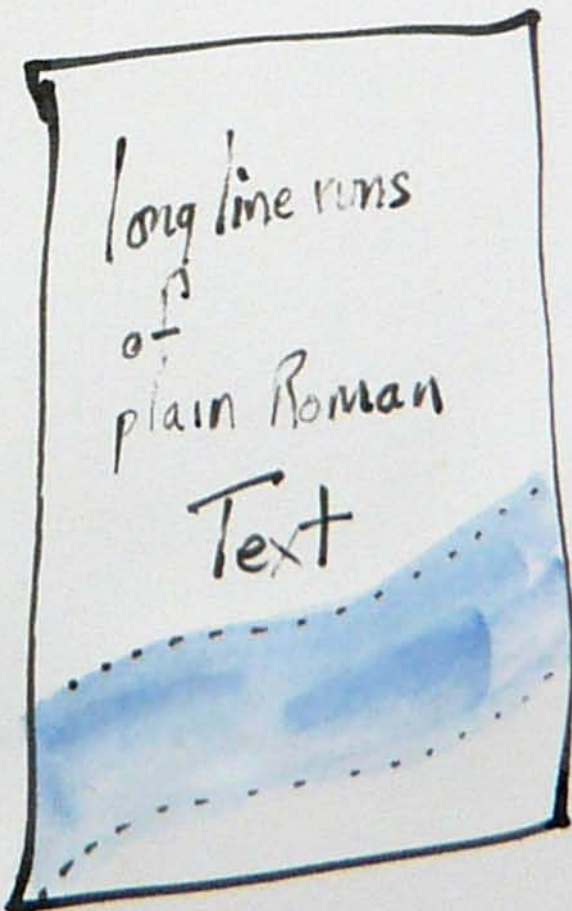 long line runs
of
plain Roman
Text